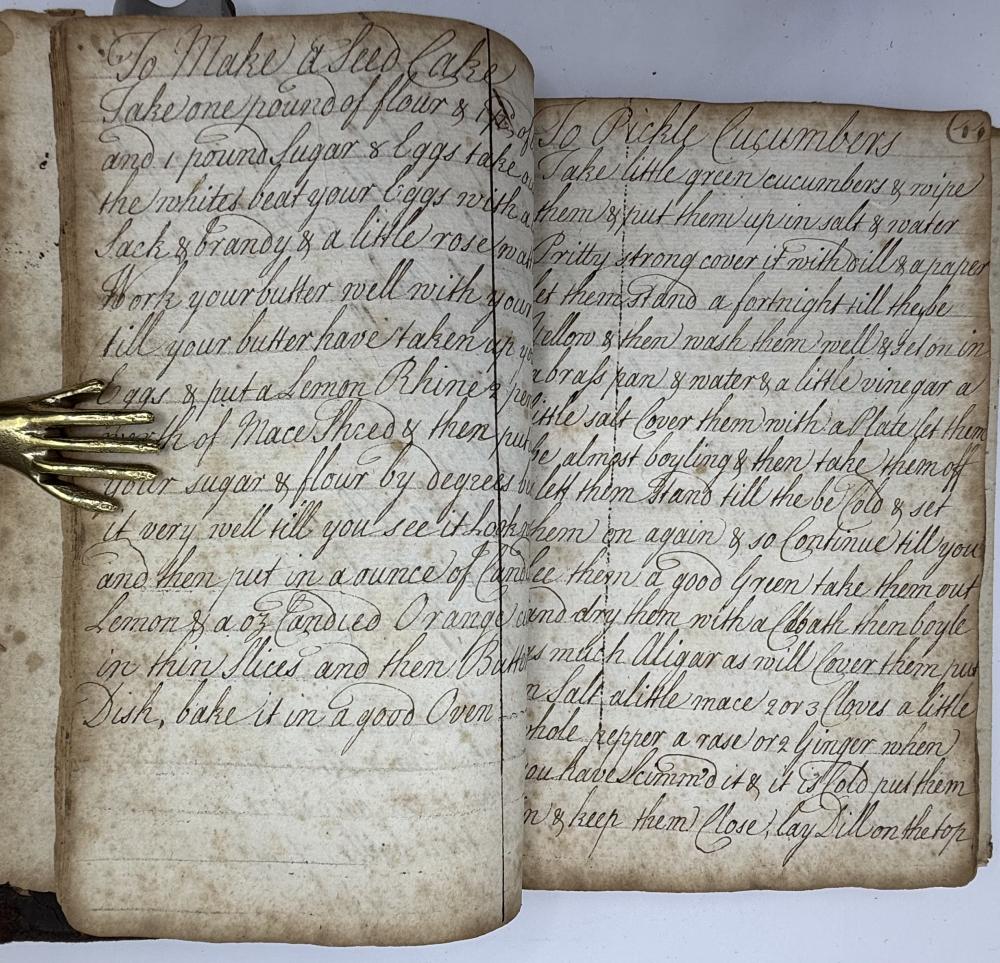 To Make a Seed Cake
Take one pound of flour & 1 of
and 1 pound Sugar 8 Eggs take
the whites beat your Eggs with a
Sack & brandy & a little rose wat
Work your butter well with your
till your butter have taken up yo
Eggs & put a Lemon Rhine 2 pen
worth of Mace Shred & then put
your sugar & flour by degrees
it very well till you see it Look
and then put in a ounce of Cand
Lemon & a oz Candied Orange
in thin Slices and then Butt
Dish, bake it in a good Oven
To Pickle Cucumbers
Take little green cucumbers & wipe
them & put them up in salt & water
Pritty strong cover it with dill & a paper
let them Stand a fortnight till the be
Yellow & then wash them well & set on in
a brass pan & water & a little vinegar a
little salt Cover them with a Plate let them
be almost boyling & then take them off
lett them Stand till the be Cold & set
them on again & so Continue till you
see them a good Green take them out
and dry them with a Cloath then boyle
as much Aligar as will Cover them put
in Salt a little mace 2 or 3 Cloves a little
whole pepper a rase or 2 Ginger when
you have Scimm'd it & it is Cold put them
in & keep them Close, lay Dill on the top